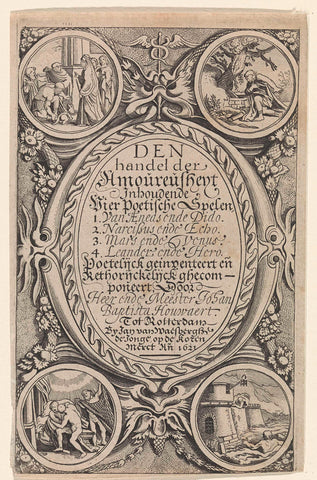 DEN
handel der
Amoureusheyt
Inhoudende
Vier Poetische Spelen
1. Van Æneas ende Dido.
2. Narcissus ende Echo.
3. Mars ende Venus.
4. Leander ende Hero.
Poetelyck geinventeert eñ
Rethorijckelyck ghecom-
poneert. Door
Heer ende Meester Johan
Baptista Houwaert.
Tot Rotterdam
By Jan van Waesberghe
de Jonge op de
Meret An 1621